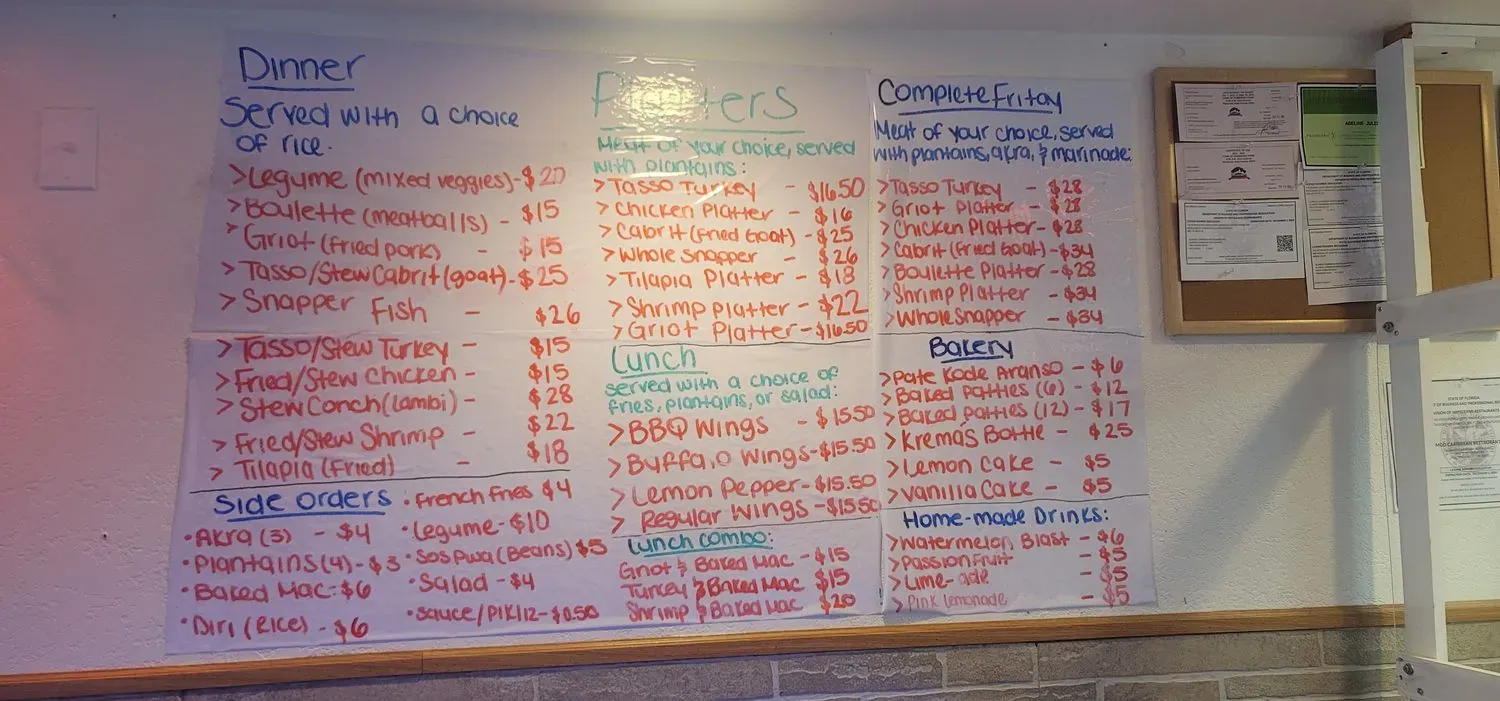 Dinner
Served with a choice
of rice.
>Legume (mixed veggies)-$20
>Boulette (meatballs) - $15
>Griot (fried pork) - $15
>Tasso/Stew Cabrit (goat)-$25
>Snapper Fish - $26
>Tasso/Stew Turkey - $15
>Fried/Stew Chicken - $15
>Stew Conch (lambi) - $28
>Fried/Stew Shrimp - $22
>Tilapia (Fried) - $18
Side Orders
•Akra (3) - $4
•Plantains (4) - $3
•Baked Mac: $6
•Diri (Rice) - $6
•French Fries $4
•Legume - $10
•Sos Pwa (Beans) $5
•Salad - $4
•Sauce/Pikliz - $0.50
Platters
Meat of your choice, served
with plantains:
>Tasso Turkey - $16.50
>Chicken Platter - $16
>Cabrit (fried Goat) - $25
>Whole Snapper - $26
>Tilapia Platter - $18
>Shrimp Platter - $22
>Griot Platter - $16.50
Lunch
served with a choice of
fries, plantains, or salad:
>BBQ Wings - $15.50
>Buffalo Wings - $15.50
>Lemon Pepper - $15.50
> Regular Wings - $15.50
Lunch Combo:
Griot & Baked Mac - $15
Turkey & Baked Mac $15
Shrimp & Baked Mac $20
Complete Fritay
Meat of your choice, served
with plantains, akra, & marinade:
>Tasso Turkey - $28
>Griot Platter - $28
>Chicken Platter - $28
>Cabrit (fried Goat) - $34
>Boulette Platter - $28
>Shrimp Platter - $34
>Whole Snapper - $34
Bakery
>Pate Kode Aranso - $6
>Baked Patties (6) - $12
>Baked Patties (12) - $17
>Kremas Bottle - $25
>Lemon Cake - $5
>Vanilla Cake - $5
Home-made Drinks:
>Watermelon Blast - $6
>Passion Fruit - $5
>Lime-ade - $5
>Pink lemonade - $5
STATE OF FLORIDA